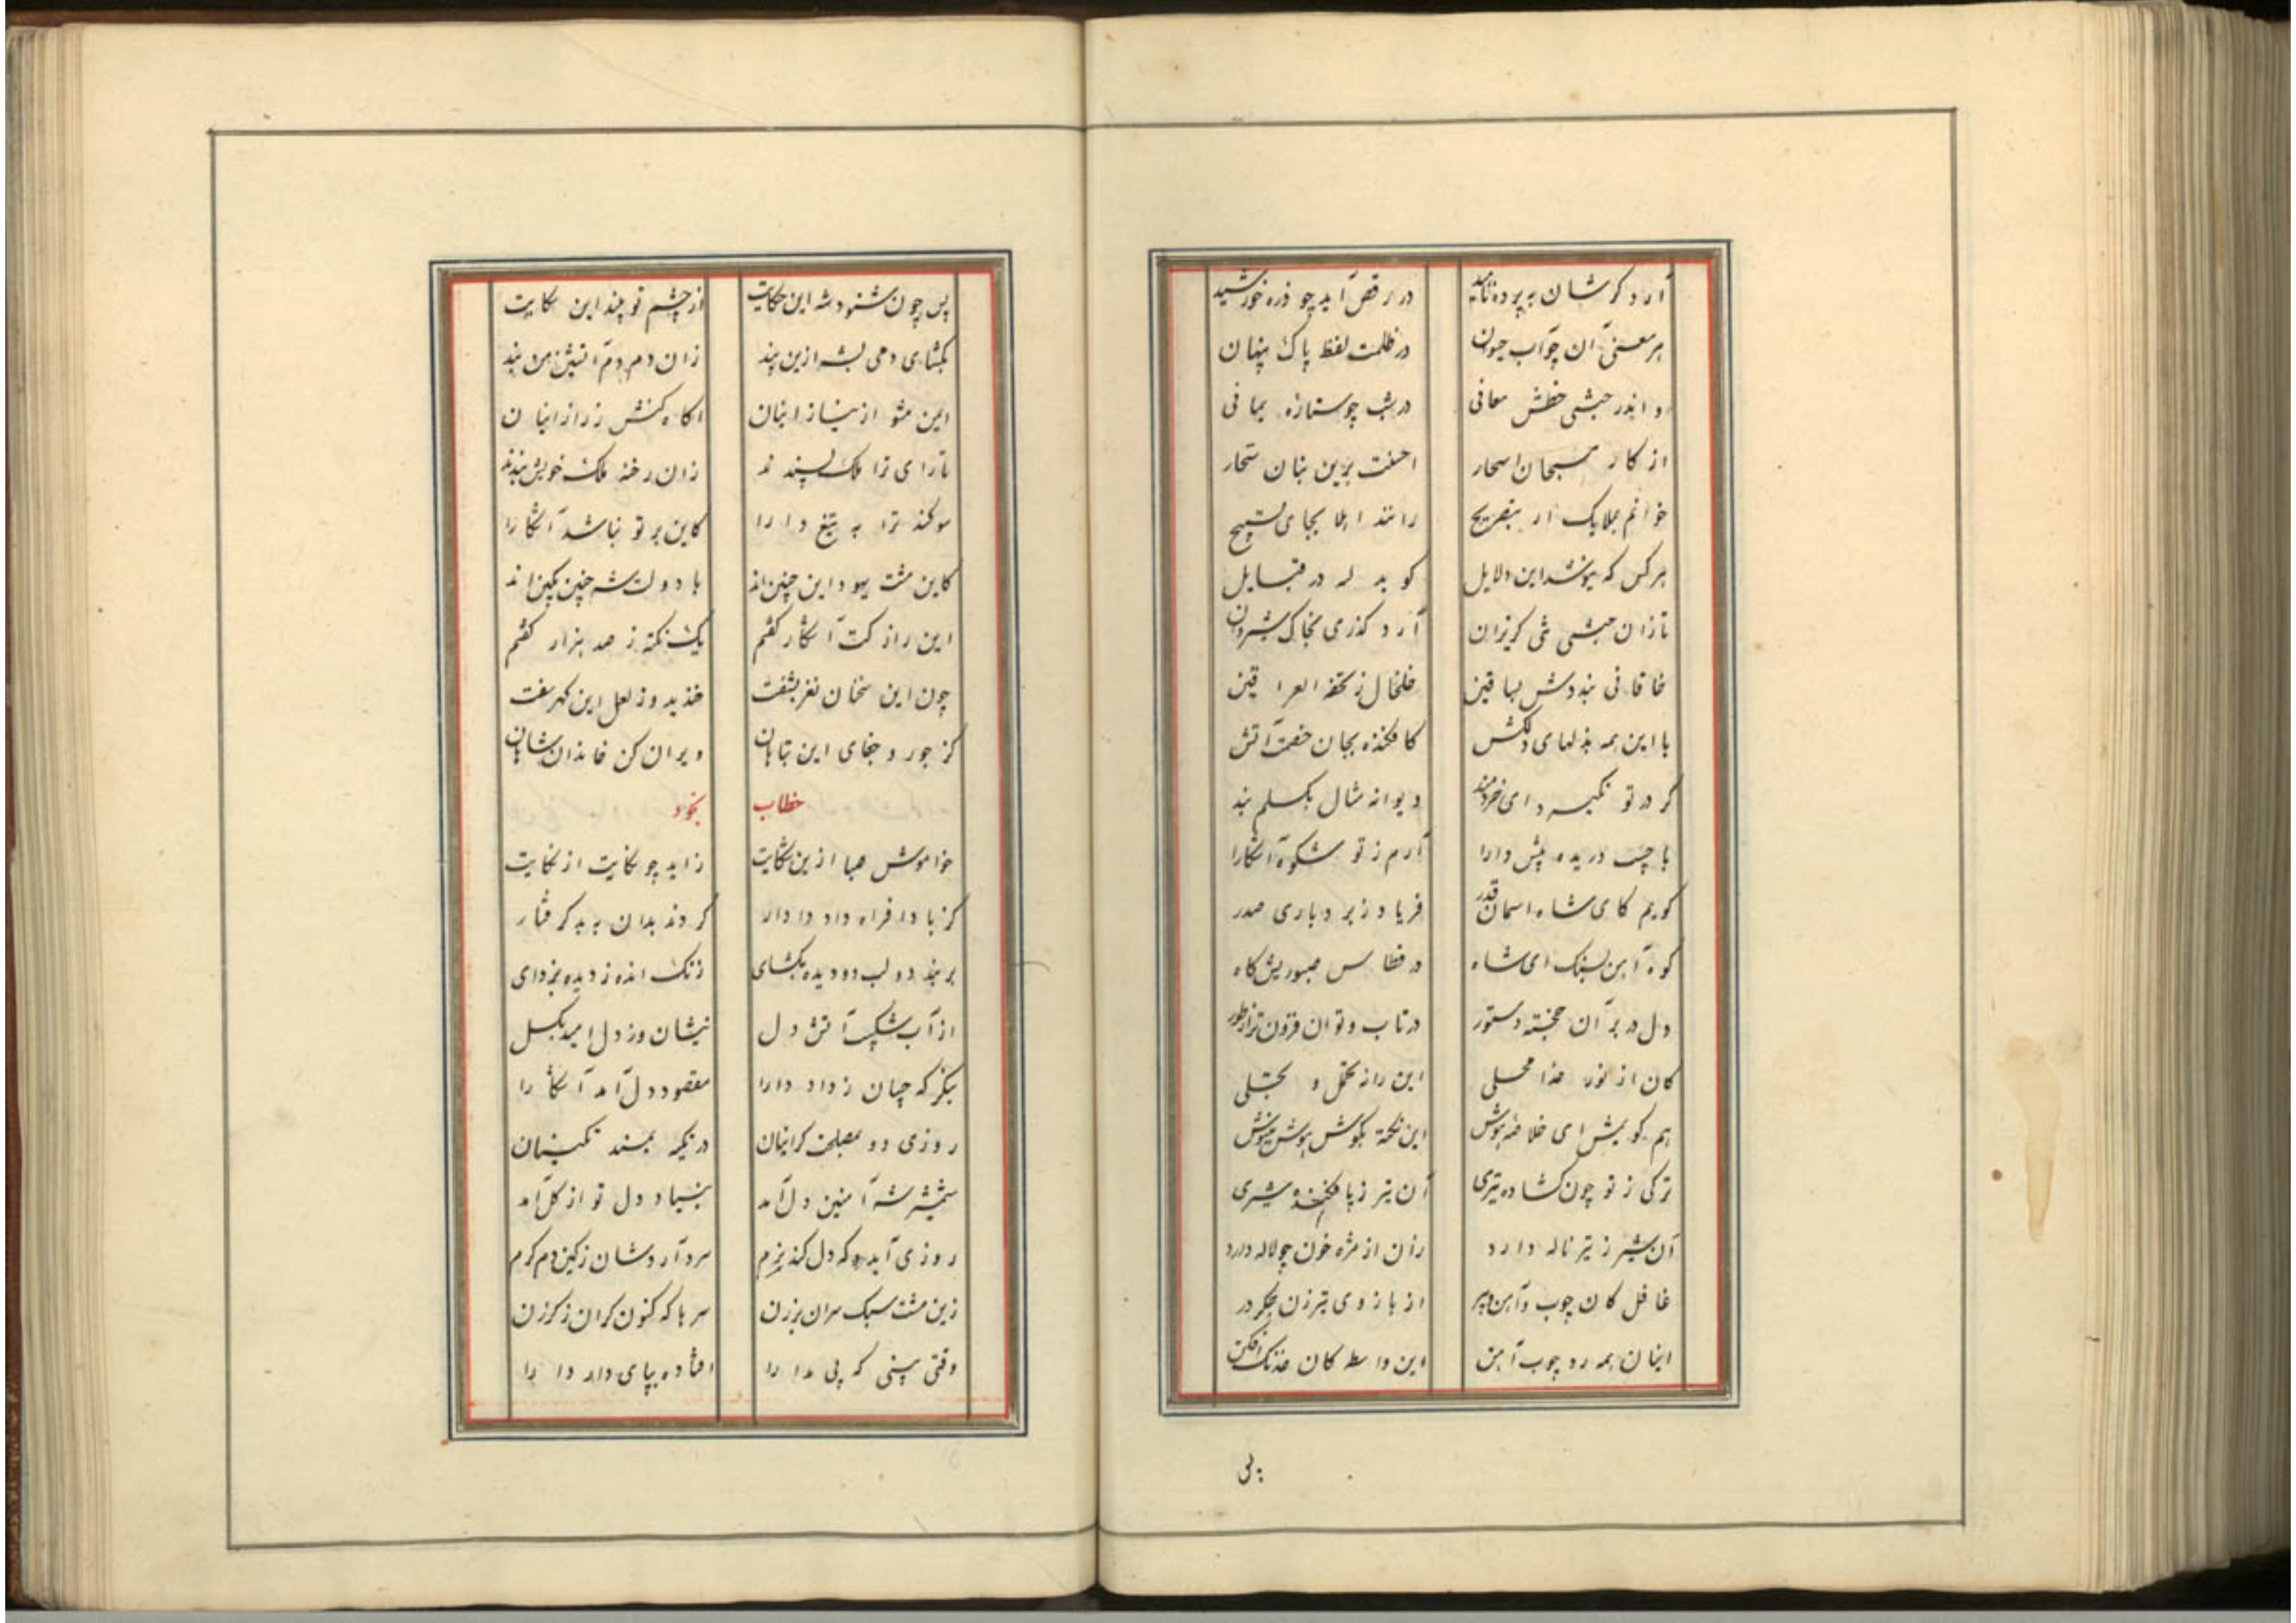 آرد کر شان به پرده ناهید در رقص آید چو ذره خورشید
هر معنی آن چو آب حیوان در ظلمت لفظ پاک پنهان
و اندر حبشی خطش معانی در شب چو ستاره یمانی
از کار مسبحان اسحار احسنت برین بنان سحار
خوانم بملایک ار بتصریح رانند ابلا بجای تسبیح
هر کس که نیوشد این دلایل کوید له در قبایل
تا زان حبشی شی کریزان آرد کذری بخاک شروان
خاقانی بنددش بساقین خلخال ز تحفه العراقین
با این همه بذلهای دلکش کافکنده بجان خصمت آتش
کر در تو نکیرد ای خردمند دیوانه مثال بکسلم بند
با جیب دریده پیش دارا آرم ز تو شکوه آشکارا
کویم کای شاه اسمان قدر فریاد ز بردباری صدر
کوه آهن بسنک ای شاه در قطاس صبوریش کاه
دل در بر آن خجسته دستور در تاب و توان فزون تر از طور
کان از نور خدا محلی این را نه تحمل و تجلی
هم کویش ای خلاصه هوش این نکته بکوش هوش نیوش
ترکی ز تو چون کشاده تیری آن تیر ز پا فکنده شیری
آن شیر ز تیر ناله دارد ران از مژه خون چو لاله دارد
غافل کان چوب و آهن و پر از بازوی تیرزن جکر در
اینان همه رد چوب آهن این واسطه کان خدنک افکن
پس چون شنود شه این حکایت از چشم تو بیند این نکایت
بکشای دمی لب از این پند زان دم بدم آتیش من بند
ایمن مشو از نیاز اینان اکاه کنش ز راز اینان
تا رای ترا ملک پسندند زان رخنه ملک خویش بندند
سوکند ترا به تیغ دارا کاین بر تو نباشد آشکارا
کاین مشت یهود این چنین‌اند با دولت شه چنین بکین‌اند
این راز کت آشکار کفتم یک نکته ز صد هزار کفتم
چون این سخنان نغز بشنفت خندید وز لعل این کهر سفت
کز جور و جفای این تباهان ویران کن خاندان شاهان
خطاب بخود
خاموش صبا از این شکایت زاید چو نکایت از نکایت
کز بادافراه داد دادار کردند بدان به بد کرفتار
بر بند دو لب دو دیده بکشای زنک انده ز دیده بزدای
از آب شکیب آتش دل بنشان وز دل امید بکسل
بنکر که چسان ز داد دارا مقصود دل آمد آشکارا
روزی دو بمصلحت کر اینان در تکیه بمسند نکینان
شمشیر شه آهنین دل آمد بنیاد دل تو از کل آمد
روزی آید که دل کند نرم سرد آردشان ز کین دم کرم
زین مشت سبک سران بر زن سرها که کنون کران ز کرزن
وقتی بینی که بی مدارا افتاده بپای دار دارا